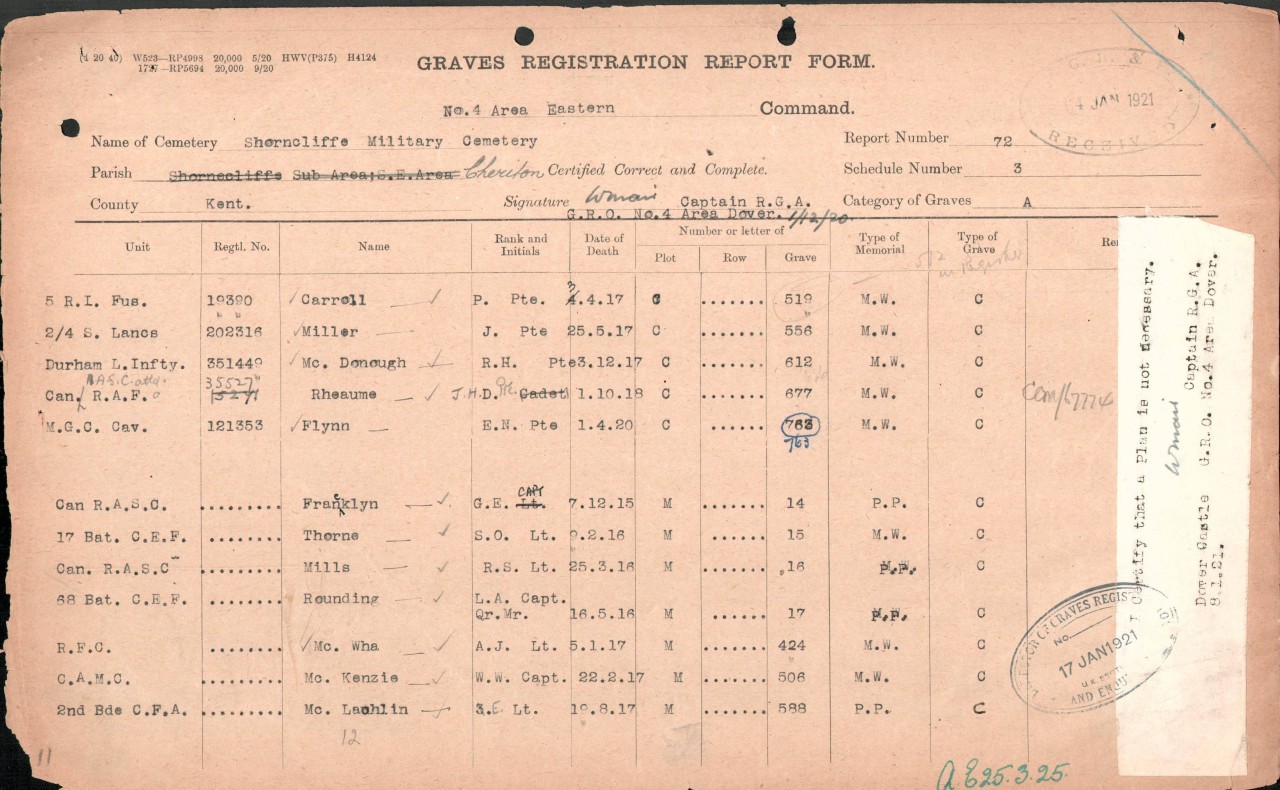 (4 20 46) W523—RP4998 20,000 5/20 HWV(P375) H4124
1727—RP5694 20,000 9/20
GRAVES REGISTRATION REPORT FORM.
4 JAN 1921
RECEIVED
No.4 Area Eastern Command.
Name of Cemetery Shorncliffe Military Cemetery Report Number 72
Parish Shornecliffe Sub Area;S.E.Area Cheriton Certified Correct and Complete. Schedule Number 3
County Kent. Signature Captain R.G.A. Category of Graves A
G.R.O. No.4 Area Dover. 1/12/20.
Unit Regtl. No. Name Rank and Initials Date of Death Number or letter of Plot Row Grave Type of Memorial Type of Grave
in Register
5 R.I. Fus. 19390 Carroll P. Pte. 3.4.17 C ....... 519 M.W. C
2/4 S. Lancs 202316 Miller J. Pte 25.5.17 C ....... 556 M.W. C
Durham L.Infty. 351449 Mc. Donough R.H. Pte 3.12.17 C ....... 612 M.W. C
Can. R.A.F. Rheaume J.H.D. Cadet 1.10.18 C ....... 677 M.W. C
M.G.C. Cav. 121353 Flynn E.N. Pte 1.4.20 C ....... 763 M.W. C
763
CAPT
Can R.A.S.C. ......... Franklyn G.E. Lt. 7.12.15 M ....... 14 P.P. C
17 Bat. C.E.F. ......... Thorne S.O. Lt. 9.2.16 M ....... 15 M.W. C
Can. R.A.S.C ......... Mills R.S. Lt. 25.3.16 M ....... 16 P.P. C
68 Bat. C.E.F. ......... Rounding L.A. Capt.
Qr.Mr. 16.5.16 M ....... 17 P.P. C
R.F.C. ......... Mc. Wha A.J. Lt. 5.1.17 M ....... 424 M.W. C
C.A.M.C. ......... Mc. Kenzie W.W. Capt. 22.2.17 M ....... 506 M.W. C
2nd Bde C.F.A. ......... Mc. Lachlin E. Lt. 19.8.17 M ....... 588 P.P. C
12
11
A.E 25.3.25.
I Certify that a Plan is not necessary.
Captain R.G.A.
Dover Castle G.R.O. No.4 Area Dover.
8.1.21.
No.
17 JAN 1921